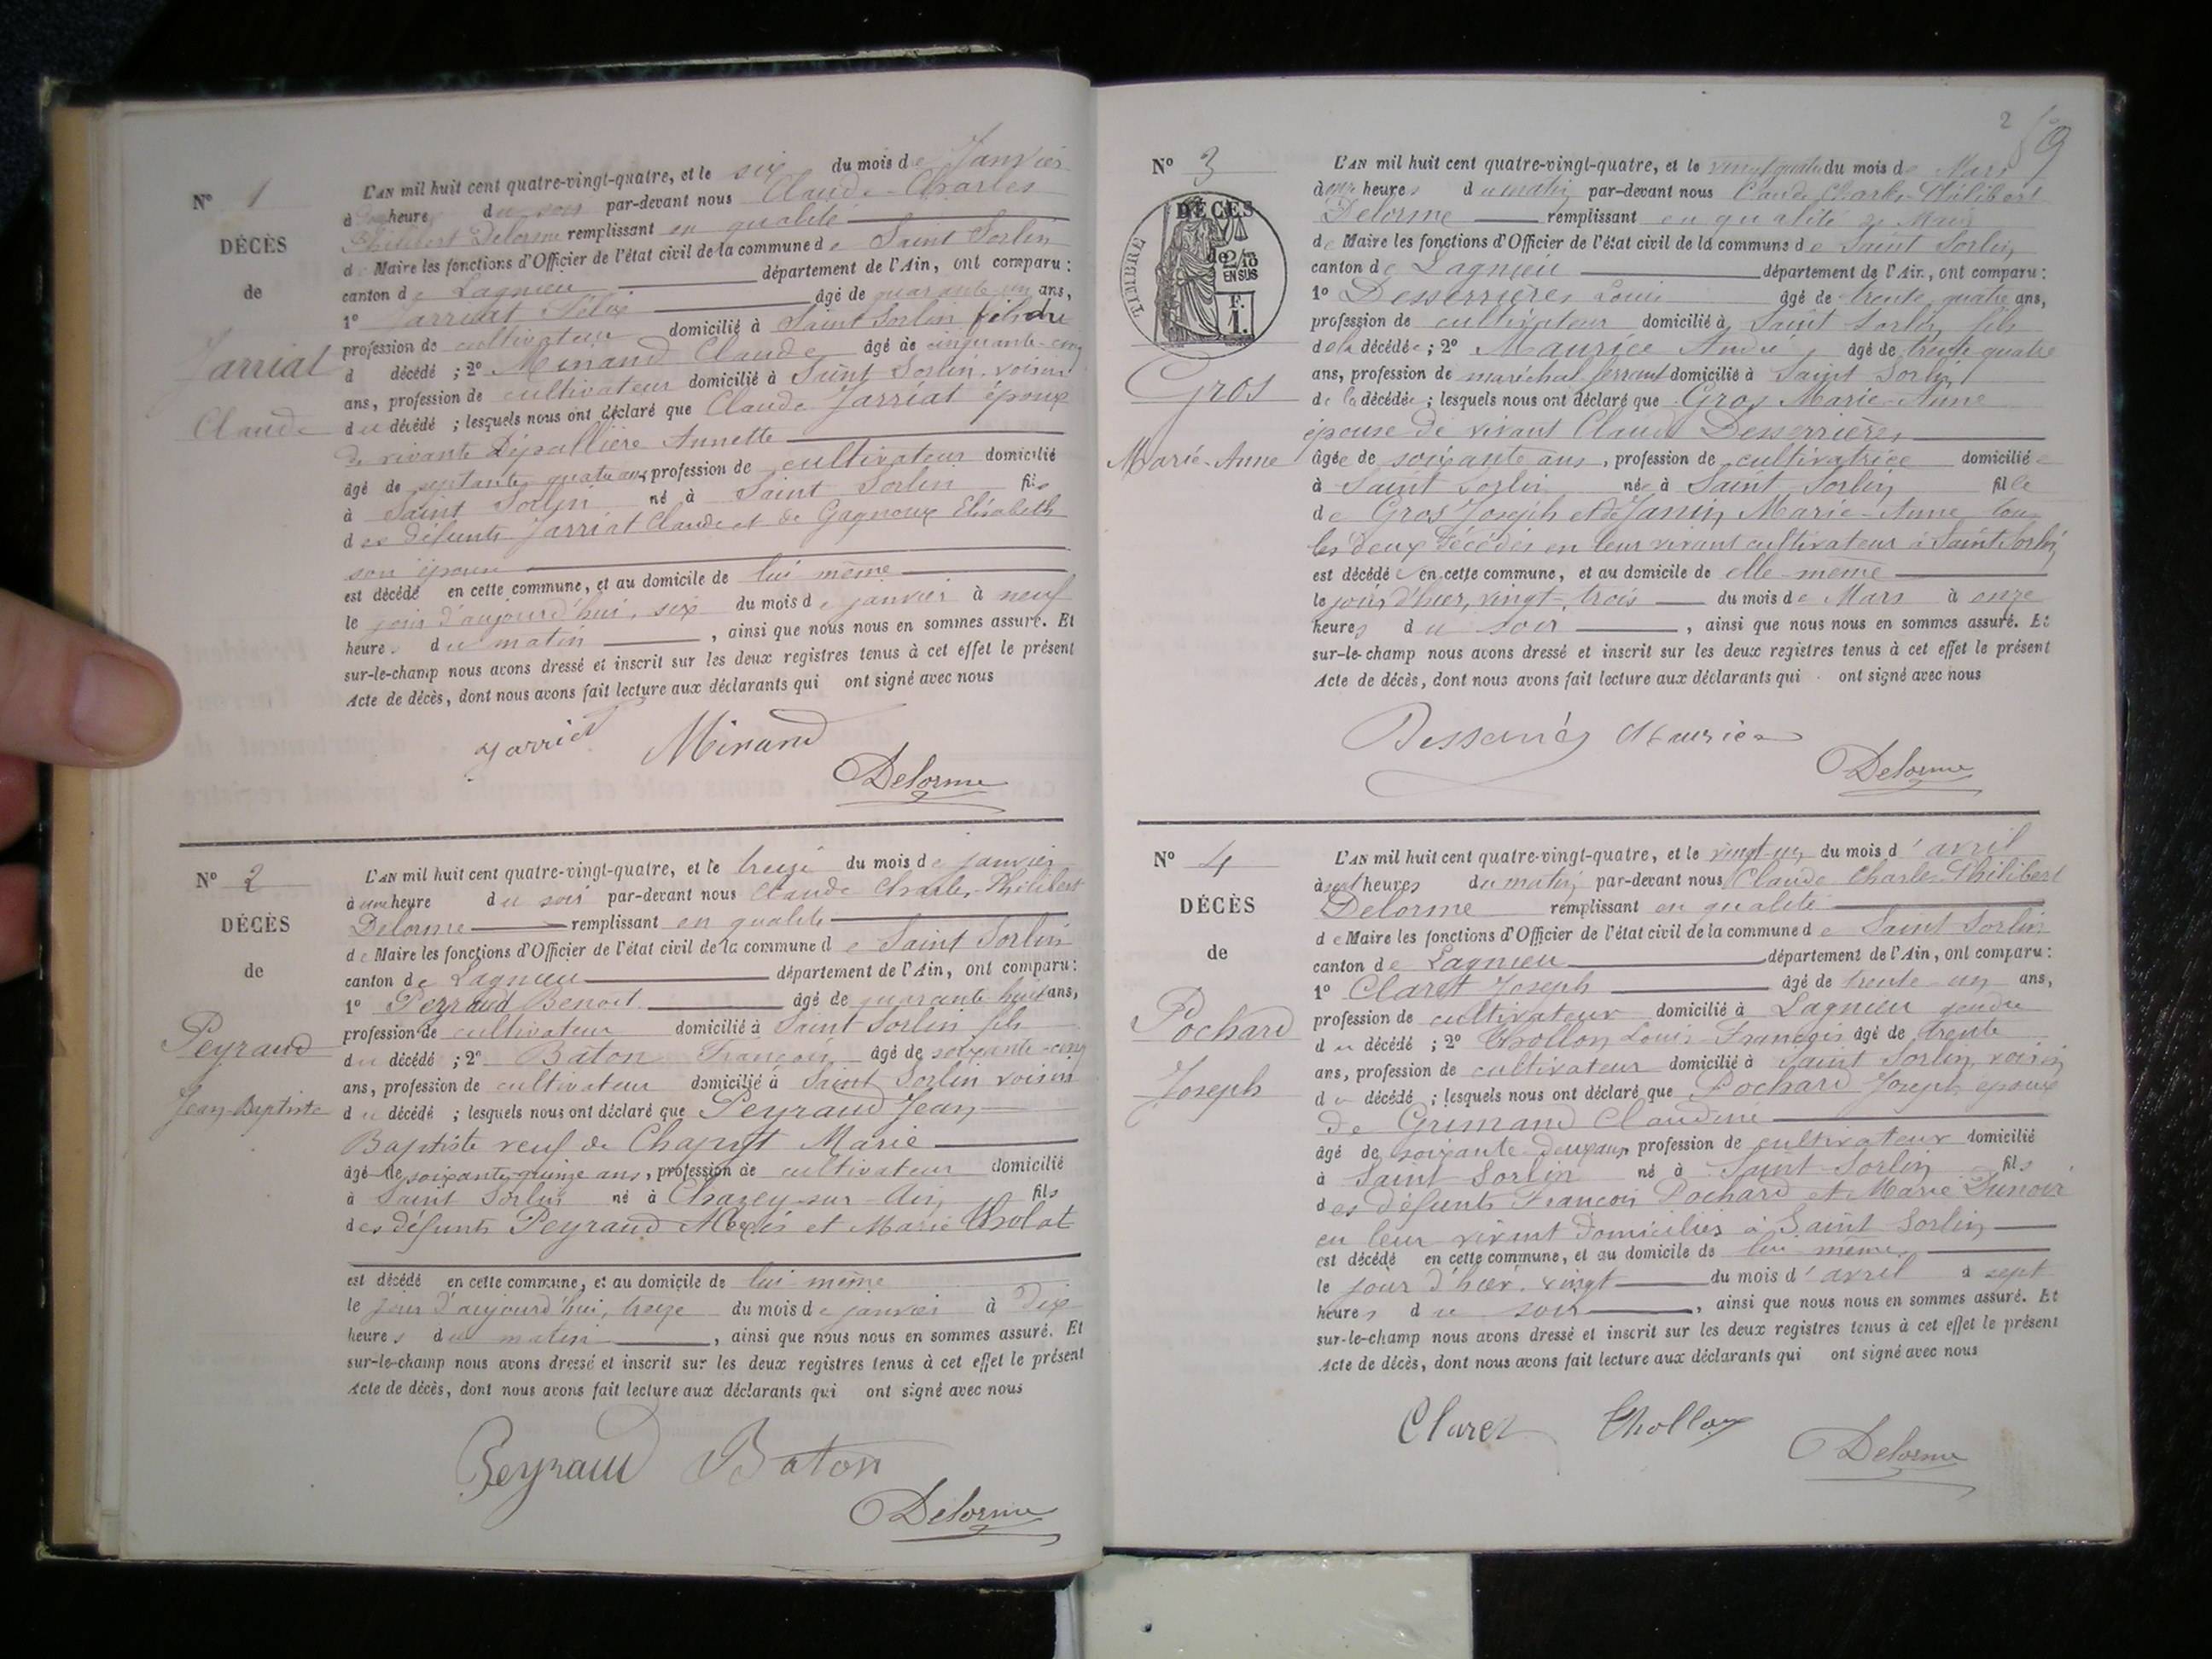 Nº 1
DÉCÈS
de
Jarriat
Claude
L'AN mil huit cent quatre-vingt-quatre, et le six du mois de Janvier
à heure du soir par-devant nous Claude-Charles
Philibert Delorme remplissant en qualité
de Maire les fonctions d'Officier de l'état civil de la commune de Saint Sorlin
canton de Lagnieu département de l'Ain, ont comparu :
1º Jarriat Félix âgé de quarante-un ans,
profession de cultivateur domicilié à Saint Sorlin fils du
d décédé ; 2º Minand Claude âgé de cinquante-cinq
ans, profession de cultivateur domicilié à Saint Sorlin voisin
du décédé ; lesquels nous ont déclaré que Claude Jarriat époux
de vivante Dépallière Annette
âgé de septante quatre ans, profession de cultivateur domicilié
à Saint Sorlin né à Saint Sorlin fils
des défunts Jarriat Claude et de Gagneux Elisabeth
son épouse
est décédé en cette commune, et au domicile de lui même
le jour d'aujourd'hui, six du mois de janvier à neuf
heures du matin , ainsi que nous nous en sommes assuré. Et
sur-le-champ nous avons dressé et inscrit sur les deux registres tenus à cet effet le présent
Acte de décès, dont nous avons fait lecture aux déclarants qui ont signé avec nous
Jarriat Minand
Delorme
Nº 2
DÉCÈS
de
Peyraud
Jean-Baptiste
L'AN mil huit cent quatre-vingt-quatre, et le treize du mois de janvier
à une heure du soir par-devant nous Claude Charles-Philibert
Delorme remplissant en qualité
de Maire les fonctions d'Officier de l'état civil de la commune de Saint Sorlin
canton de Lagnieu département de l'Ain, ont comparu :
1º Peyraud Benoit âgé de quarante huit ans,
profession de cultivateur domicilié à Saint Sorlin fils
du décédé ; 2º Bâton François âgé de soixante-cinq
ans, profession de cultivateur domicilié à Saint Sorlin voisin
du décédé ; lesquels nous ont déclaré que Peyraud Jean
Baptiste veuf de Chapuit Marie
âgé de soixante-quinze ans, profession de cultivateur domicilié
à Saint Sorlin né à Chazey-sur-Ain fils
des défunts Peyraud Alexis et Marie Cholat
est décédé en cette commune, et au domicile de lui même
le jour d'aujourd'hui, treize du mois de janvier à dix
heures du matin , ainsi que nous nous en sommes assuré. Et
sur-le-champ nous avons dressé et inscrit sur les deux registres tenus à cet effet le présent
Acte de décès, dont nous avons fait lecture aux déclarants qui ont signé avec nous
Peyraud Baton
Delorme
2
Nº 3
DÉCÈS
de
TIMBRE
2/10
EN SUS
F.
1.
Gros
Marie-Anne
L'AN mil huit cent quatre-vingt-quatre, et le vingt quatre du mois de Mars
à onze heures du matin par-devant nous Claude Charles-Philibert
Delorme remplissant en qualité de Maire
de Maire les fonctions d'Officier de l'état civil de la commune de Saint Sorlin
canton de Lagnieu département de l'Ain, ont comparu :
1º Desserrières Louis âgé de trente quatre ans,
profession de cultivateur domicilié à Saint Sorlin fils
de la décédée ; 2º Maurice André, âgé de trente quatre
ans, profession de maréchal ferrant domicilié à Saint Sorlin
de la décédée ; lesquels nous ont déclaré que Gros Marie-Anne
épouse de vivant Claude Desserrières
âgée de soixante ans, profession de cultivatrice domiciliée
à Saint Sorlin née à Saint-Sorlin fille
de Gros Joseph et de Janin Marie-Anne tous
les deux décédés en leur vivant cultivateur à Saint Sorlin
est décédée en cette commune, et au domicile de elle-même
le jour d'hier, vingt-trois du mois de Mars à onze
heures du soir , ainsi que nous nous en sommes assuré. Et
sur-le-champ nous avons dressé et inscrit sur les deux registres tenus à cet effet le présent
Acte de décès, dont nous avons fait lecture aux déclarants qui ont signé avec nous
Maurice
Delorme
Nº 4
DÉCÈS
de
Pochard
Joseph
L'AN mil huit cent quatre-vingt-quatre, et le vingt-un du mois d'avril
à sept heures du matin par-devant nous Claude Charles-Philibert
Delorme remplissant en qualité
de Maire les fonctions d'Officier de l'état civil de la commune de Saint Sorlin
canton de Lagnieu département de l'Ain, ont comparu :
1º Claret Joseph âgé de trente-un ans,
profession de cultivateur domicilié à Lagnieu gendre
du décédé ; 2º Chollon Louis-François âgé de trente
ans, profession de cultivateur domicilié à Saint Sorlin, voisin
du décédé ; lesquels nous ont déclaré que Pochard Joseph époux
de Grimand Claudine
âgé de soixante-deux ans, profession de cultivateur domicilié
à Saint Sorlin né à Saint-Sorlin fils
des défunts François Pochard et Marie Dunoir
en leur vivant domiciliés à Saint-Sorlin
est décédé en cette commune, et au domicile de lui même
le jour d'hier, vingt du mois d'avril à sept
heures du soir , ainsi que nous nous en sommes assuré. Et
sur-le-champ nous avons dressé et inscrit sur les deux registres tenus à cet effet le présent
Acte de décès, dont nous avons fait lecture aux déclarants qui ont signé avec nous
Claret Chollon
Delorme